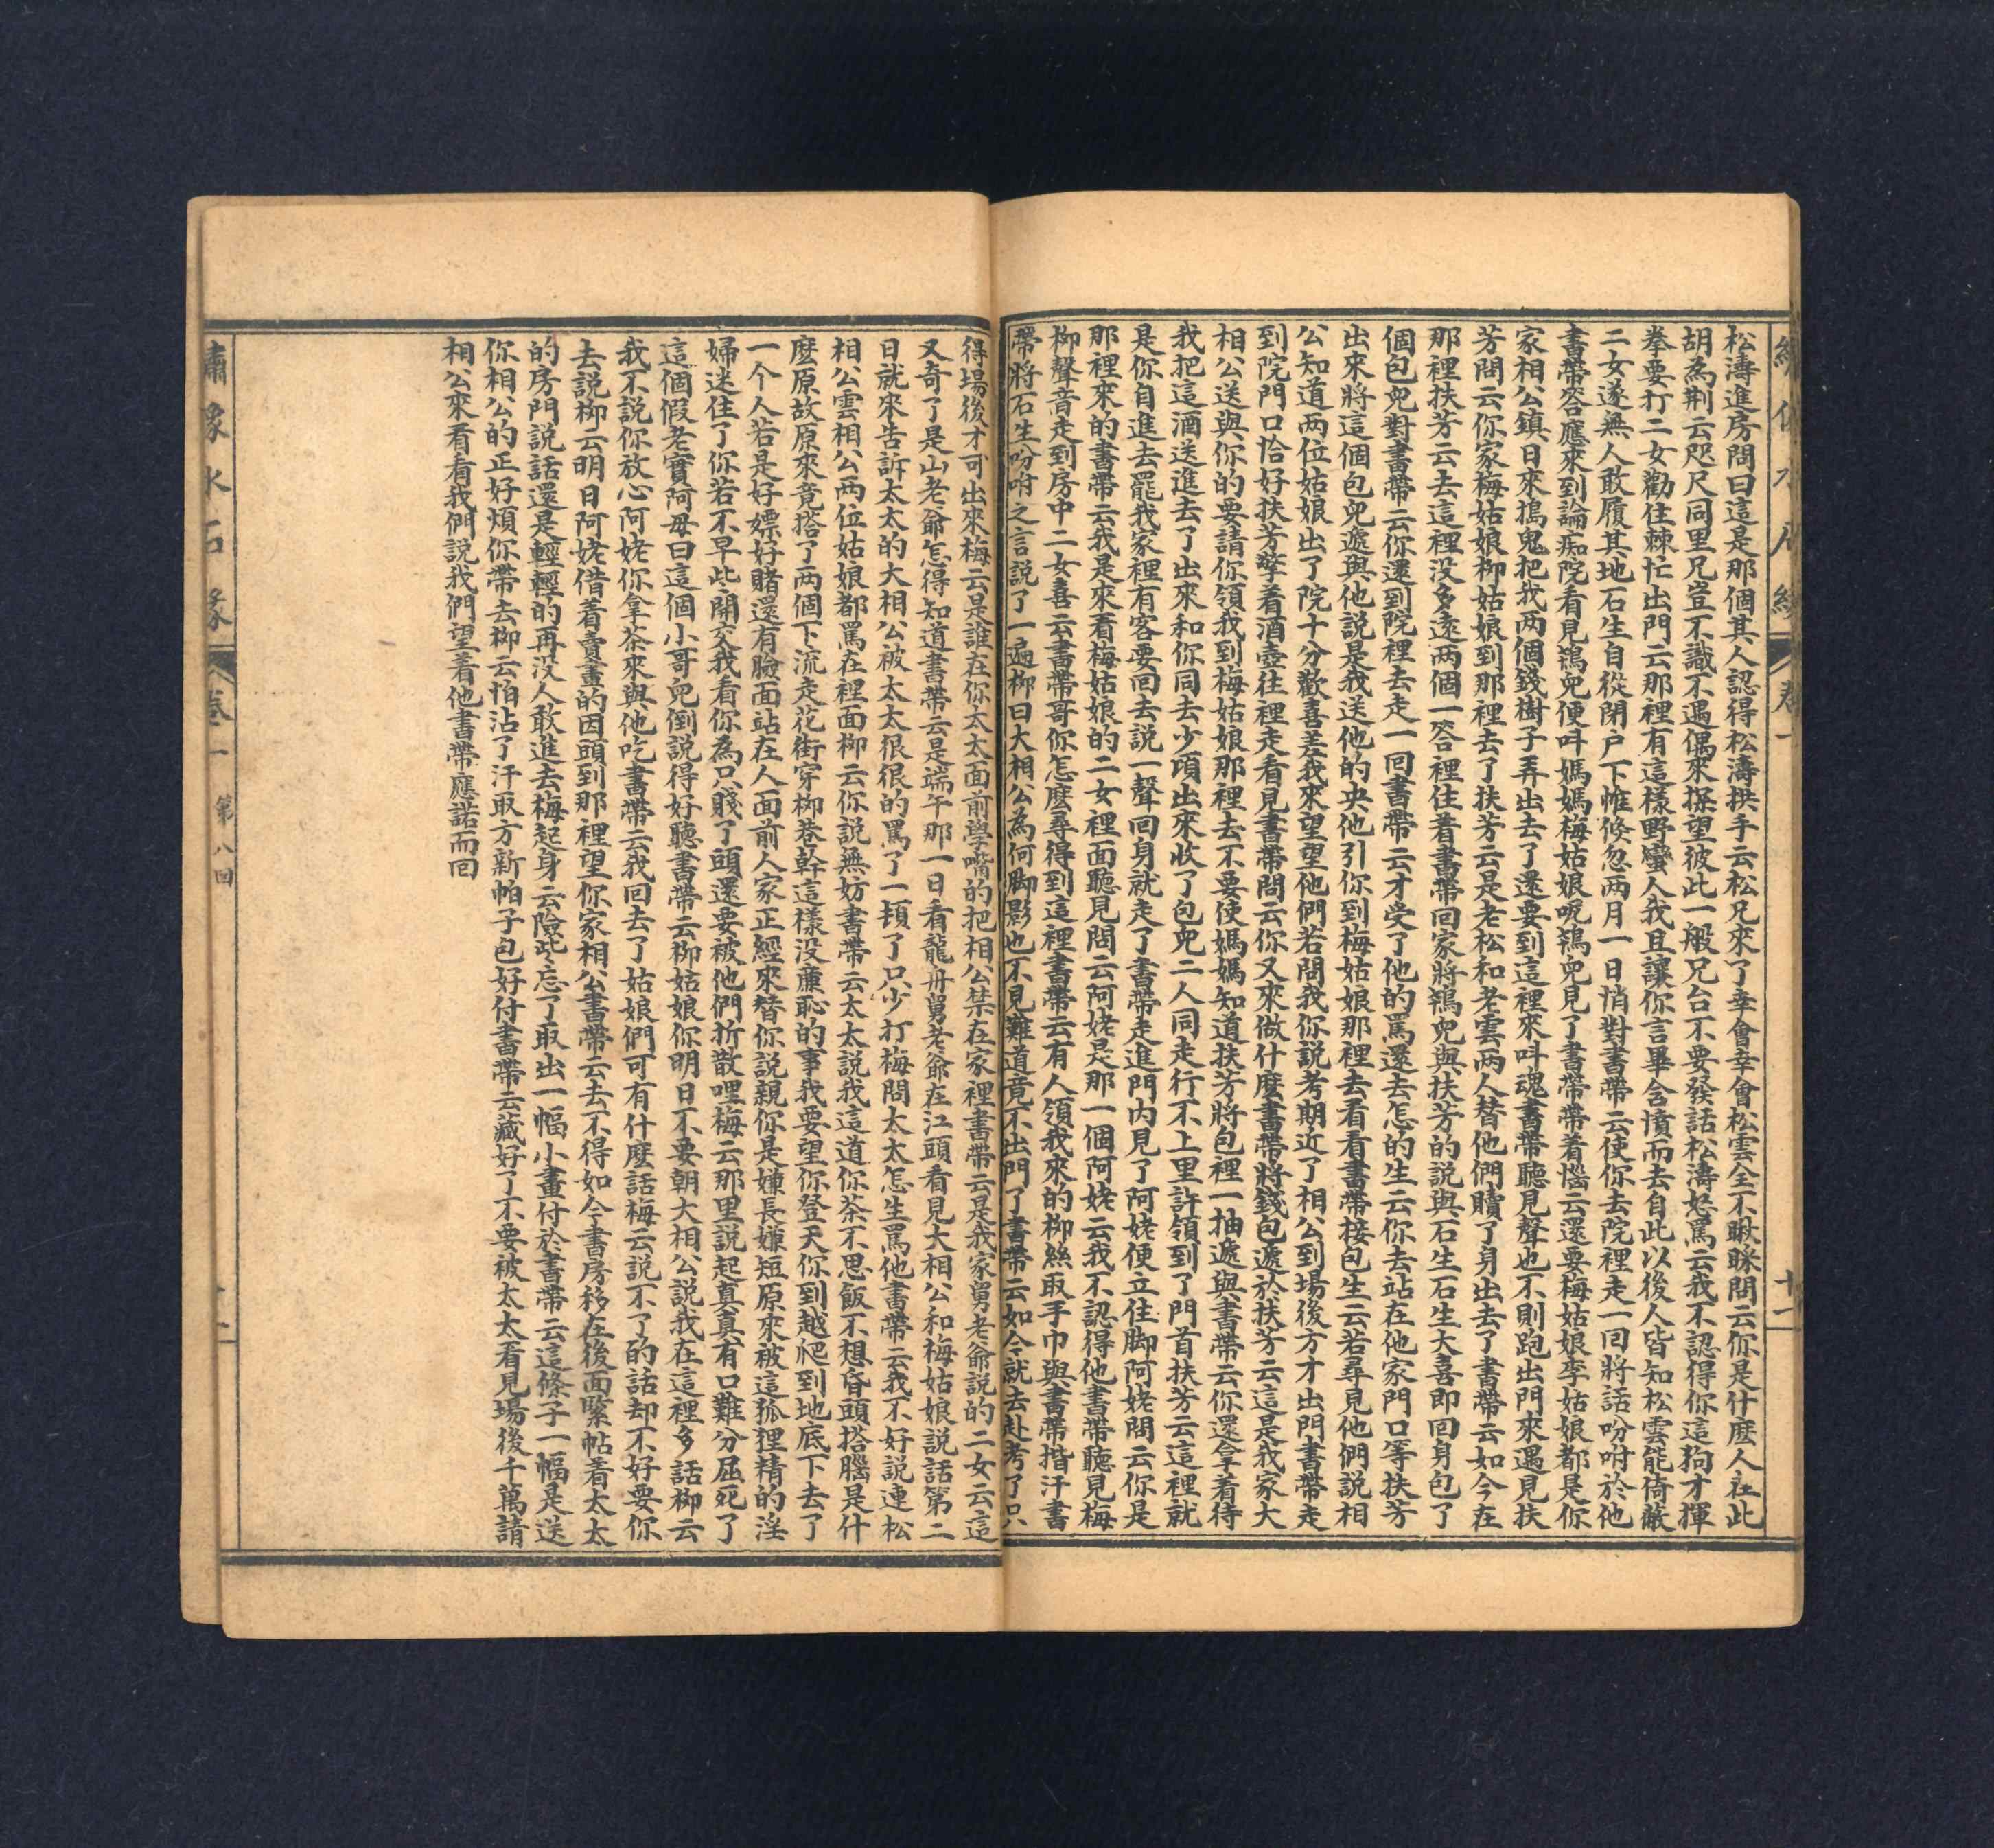 松濤進房問曰這是那個其人認得松濤拱手云松兄來了幸會幸會松雲全不瞅睬問云你是什麽人在此
胡為荆云咫尺同里兄豈不識不過偶來探望彼此一般兄台不要發話松濤怒罵云我不認得你這狗才揮
拳要打二女勸住棘忙出門云那裡有這樣野蠻人我且讓你言畢含憤而去自此以後人皆知松雲能倚蔽
二女遂無人敢履其地石生自從閉户下帷倐忽两月一日悄對書帶云使你去院裡走一回將話吩咐於他
書帶答應來到論痴院看見鴇兒便呌媽媽梅姑娘呢鴇兒見了書帶帶着惱云還要梅姑娘李姑娘都是你
家相公鎮日來搗鬼把我两個錢樹子弄出去了還要到這裡來呌魂書帶聽見聲也不則跑出門來遇見扶
芳問云你家梅姑娘柳姑娘到那裡去了扶芳云是老松和老雲两人替他們贖了身出去了書帶云如今在
那裡扶芳云去這裡没多遠两個一答裡住着書帶回家將鴇兒與扶芳的説與石生石生大喜即回身包了
個包兒對書帶云你還到院裡去走一回書帶云才受了他的罵還去怎的生云你去站在他家門口等扶芳
出來將這個包兒遞與他説是我送他的央他引你到梅姑娘那裡去看看書帶接包生云若尋見他們説相
公知道两位姑娘出了院十分歡喜差我來望望他們若問我你説考期近了相公到場後方才出門書帶走
到院門口恰好扶芳擎着酒壺往裡走看見書帶問云你又來做什麽書帶將錢包遞於扶芳云這是我家大
相公送與你的要請你領我到梅姑娘那裡去不要使媽媽知道扶芳將包裡一抽遞與書帶云你還拿着待
我把這酒送進去了出來和你同去少項出來收了包兒二人同走行不上里許領到了門首扶芳云這裡就
是你自進去罷我家裡有客要回去説一聲回身就走了書帶走進門内見了阿姥便立住脚阿姥問云你是
那裡來的書帶云我是來看梅姑娘的二女裡面聽見問云阿姥是那一個阿姥云我不認得他書帶聽見梅
柳聲音走到房中二女喜云書帶哥你怎麽尋得到這裡書帶云有人領我來的柳絲取手巾與書帶揩汗書
帶將石生吩咐之言説了一遍柳曰大相公為何脚影也不見難道竟不出門了書帶云如今就去赴考了只
得場後才可出來梅云是誰在你太太面前學嘴的把相公禁在家裡書帶云是我家舅老爺説的二女云這
又奇了是山老爺怎得知道書帶云是端午那一日看龍舟舅老爺在江頭看見大相公和梅姑娘説話第二
日就來告訴太太的大相公被太太很很的罵了一頓了只少打梅問太太怎生罵他書帶云我不好説連松
相公雲相公两位姑娘都罵在裡面柳云你説無妨書帶云太太説我這道你茶不思飯不想昏頭搭腦是什
麽原故原來竟搭了两個下流走花街穿柳巷幹這樣没亷恥的事我要望你登天你到越爬到地底下去了
一个人若是好嫖好賭還有臉面站在人面前人家正經來替你説親你是嫌長嫌短原來被這狐狸精的淫
婦迷住了你若不早些開交我看你為只賤了頭還要被他們折散哩梅云那里説起真真有口難分屈死了
這個假老實阿母曰這個小哥兒倒説得好聽書帶云柳姑娘你明日不要朝大相公説我在這裡多話柳云
我不説你放心阿姥你拿茶來與他吃書帶云我回去了姑娘們可有什麽話梅云説不了的話却不好要你
去説柳云明日阿姥借着賣畫的因頭到那裡望你家相公書帶云去不得如今書房移在後面緊帖着太太
的房門説話還是輕輕的再没人敢進去梅起身云險些忘了取出一幅小畫付於書帶云這條子一幅是送
你相公的正好煩你帶去柳云怕沾了汗取方新帕子包好付書帶云藏好了不要被太太看見場後千萬請
相公來看看我們説我們望着他書帶應諾而回
繡像水石緣 卷一 第八回